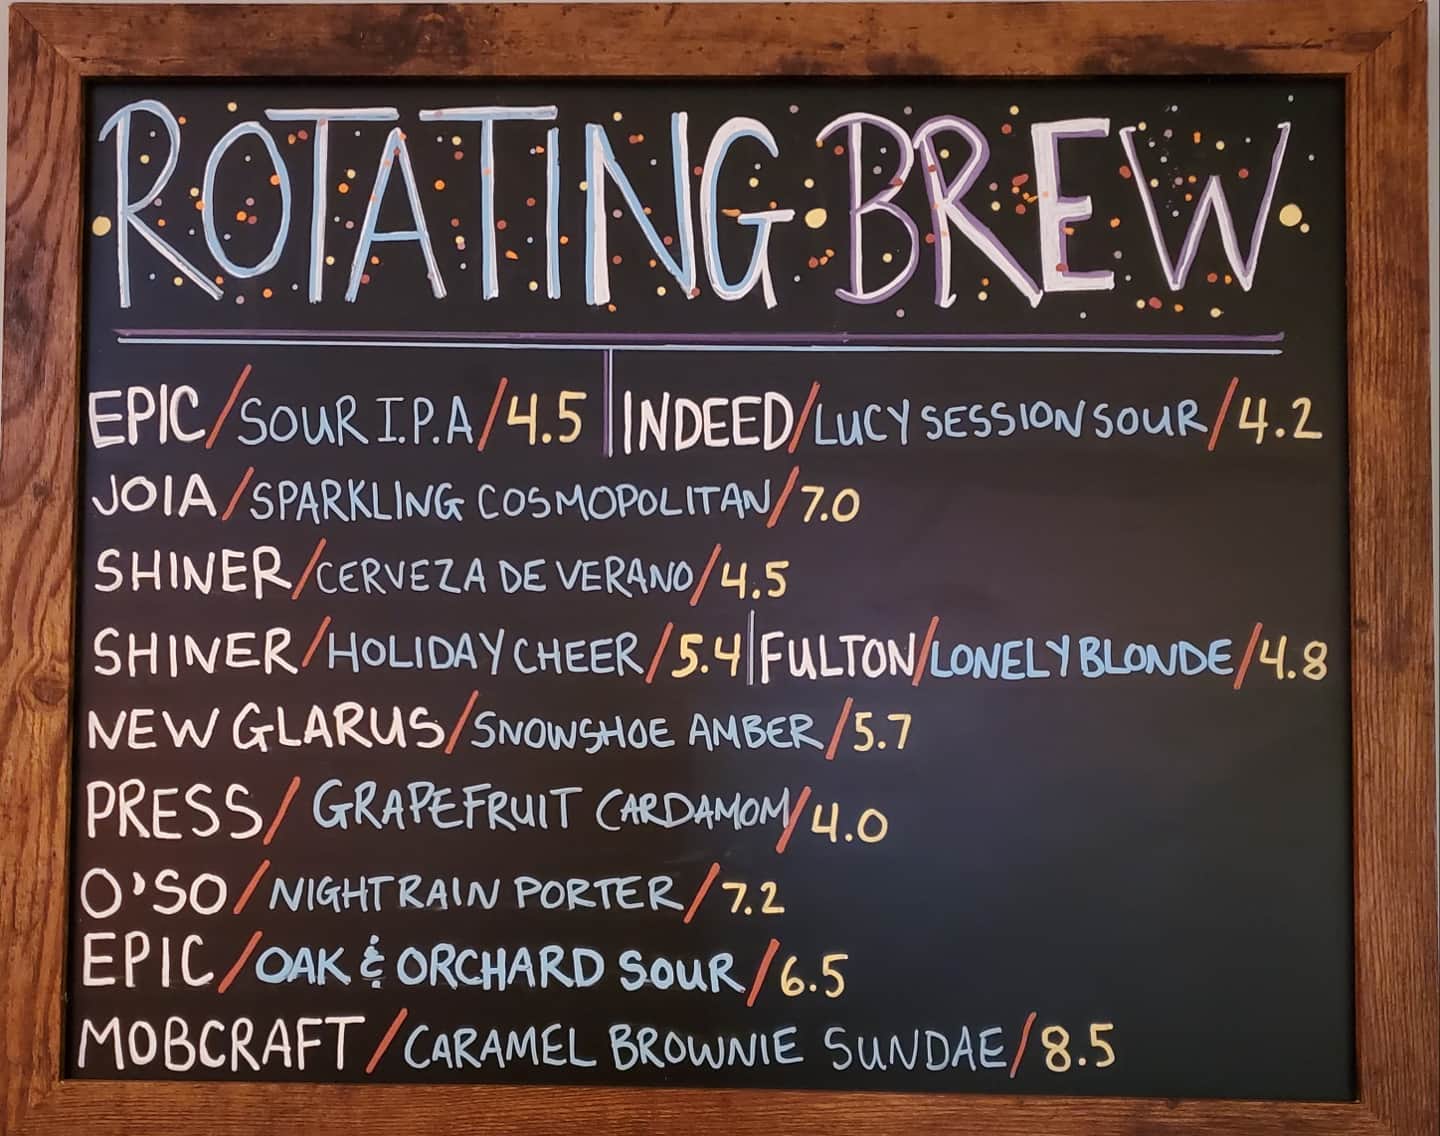 ROTATING BREW
EPIC/SOUR I.P.A/4.5 | INDEED/LUCY SESSION SOUR/4.2
JOIA/SPARKLING COSMOPOLITAN/7.0
SHINER/CERVEZA DE VERANO/4.5
SHINER/HOLIDAY CHEER/5.4 | FULTON/LONELY BLONDE/4.8
NEW GLARUS/SNOWSHOE AMBER/5.7
PRESS/GRAPEFRUIT CARDAMOM/4.0
O'SO/NIGHT RAIN PORTER/7.2
EPIC/OAK & ORCHARD SOUR/6.5
MOBCRAFT/CARAMEL BROWNIE SUNDAE/8.5